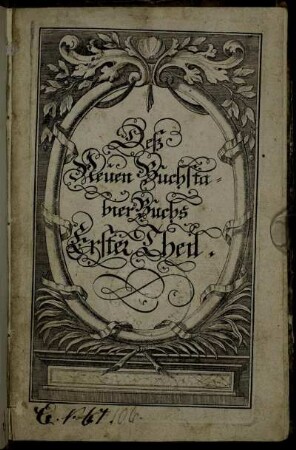 Deß
Neuen Buchsta-
bier Buchs
Erster Theil.